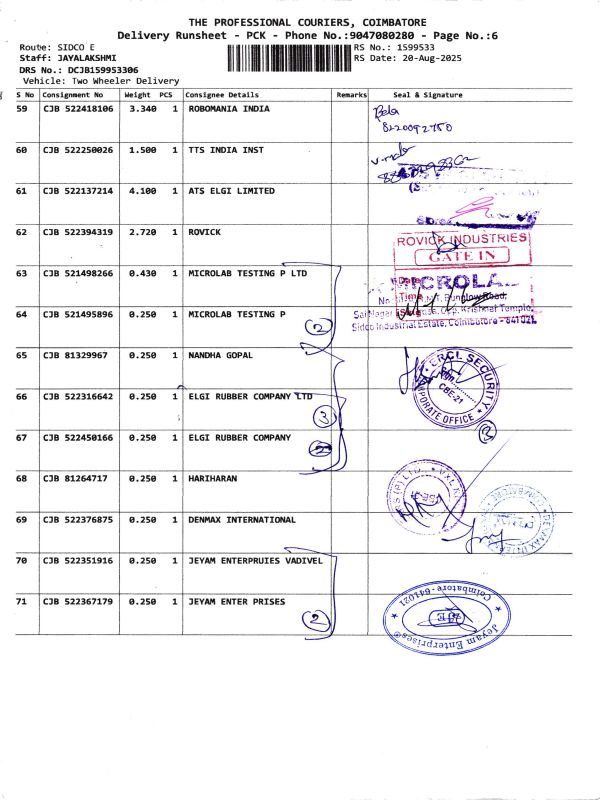 THE PROFESSIONAL COURIERS, COIMBATORE
Delivery Runsheet - PCK - Phone No.:9047080280 - Page No.:6
Route: SIDCO E RS No.: 1599533
Staff: JAYALAKSHMI RS Date: 20-Aug-2025
DRS No.: DCJB159953306
Vehicle: Two Wheeler Delivery
S No Consignment No Weight PCS Consignee Details Remarks Seal & Signature
59 CJB 522418106 3.340 1 ROBOMANIA INDIA
60 CJB 522250026 1.500 1 TTS INDIA INST
61 CJB 522137214 4.100 1 ATS ELGI LIMITED
62 CJB 522394319 2.720 1 ROVICK
ROVICK INDUSTRIES
GATE IN
63 CJB 521498266 0.430 1 MICROLAB TESTING P LTD
Date
Time
64 CJB 521495896 0.250 1 MICROLAB TESTING P
2
Sidco Industrial Estate, Coimbatore - 641021.
65 CJB 81329967 1 NANDHA GOPAL
ERCL SECURITY
CBE-21
CORPORATE OFFICE
66 CJB 522316642 0.250 1 ELGI RUBBER COMPANY LTD
3
67 CJB 522450166 0.250 1 ELGI RUBBER COMPANY
68 CJB 81264717 0.250 1 HARIHARAN
69 CJB 522376875 0.250 1 DENMAX INTERNATIONAL
70 CJB 522351916 0.250 1 JEYAM ENTERPRUIES VADIVEL
71 CJB 522367179 0.250 1 JEYAM ENTER PRISES
2
Coimbatore-641021
JE
Jeyam Enterprises